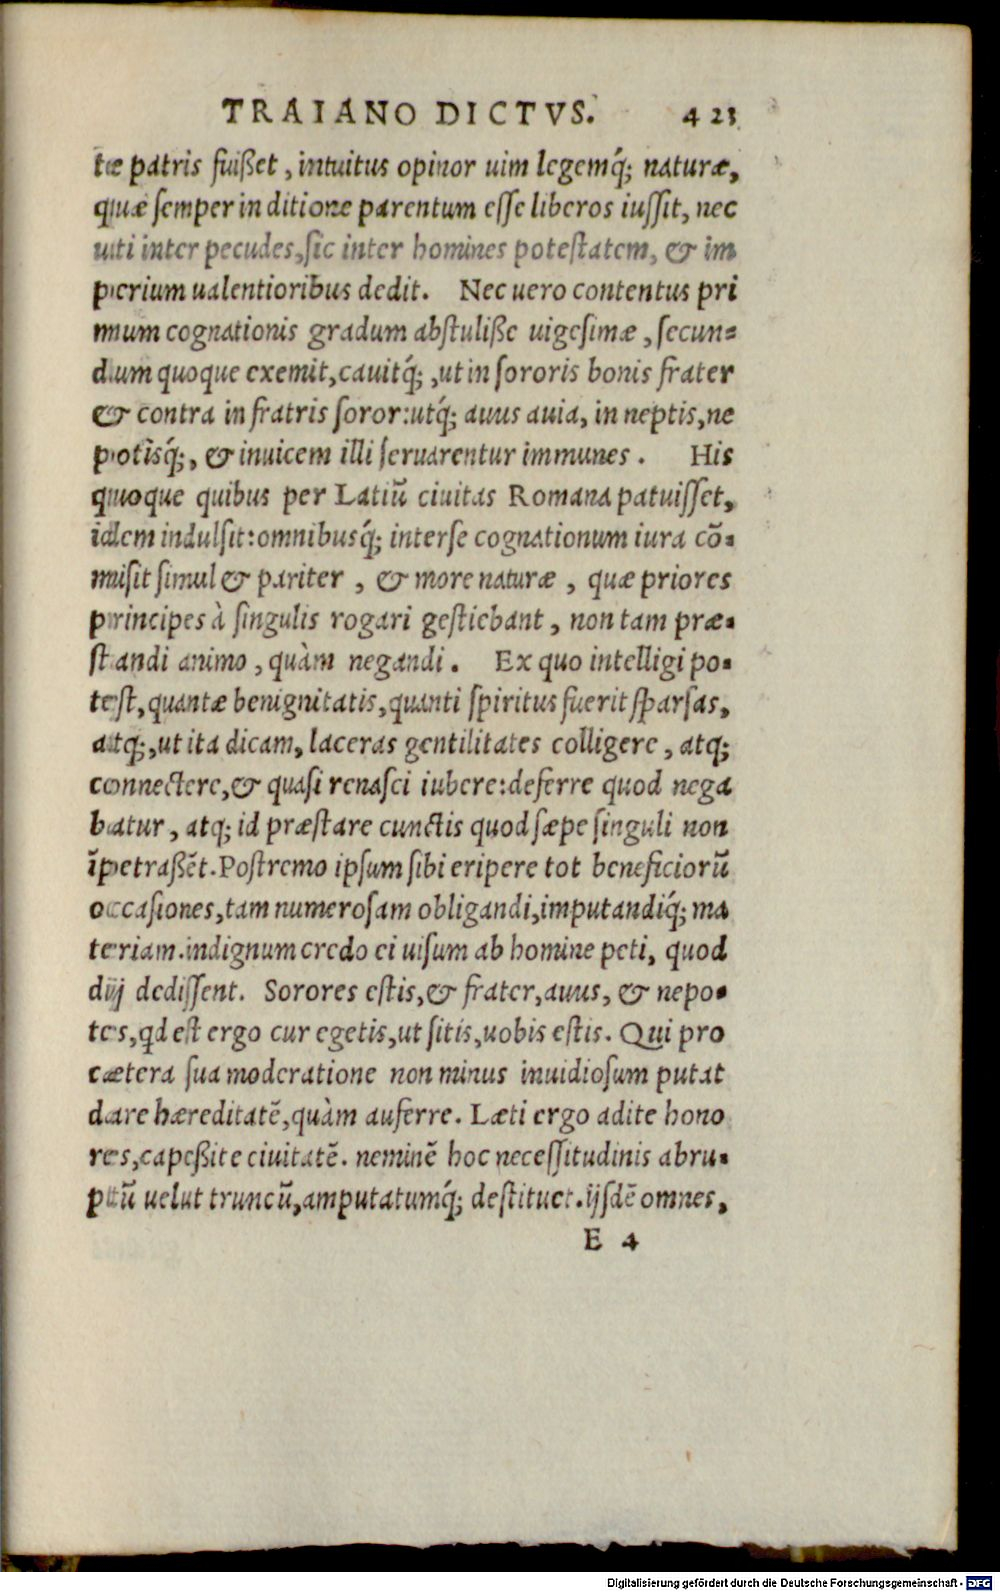 TRAIANO DICTVS. 423
tæ patris fuißet, intuitus opinor uim legemq́; naturæ,
quæ semper in ditione parentum esse liberos iussit, nec
uti inter pecudes, sic inter homines potestatem, & im
perium ualentioribus dedit. Nec uero contentus pri
mum cognationis gradum abstuliße uigesimæ, secun-
dum quoque exemit, cauitq́;, ut in sororis bonis frater
& contra in fratris soror: utq́; auus auia, in neptis, ne
potisq́;, & inuicem illi seruarentur immunes. His
quoque quibus per Latiū ciuitas Romana patuisset,
idem indulsit: omnibusq́; interse cognationum iura cō-
misit simul & pariter, & more naturæ, quæ priores
principes à singulis rogari gestiebant, non tam præ-
standi animo, quàm negandi. Ex quo intelligi po-
test, quantæ benignitatis, quanti spiritus fuerit sparsas,
atq;, ut ita dicam, laceras gentilitates colligere, atq;
connectere, & quasi renasci iubere: deferre quod nega
batur, atq; id præstare cunctis quod sæpe singuli non
īpetraßēt. Postremo ipsum sibi eripere tot beneficiorū
occasiones, tam numerosam obligandi, imputandiq́; ma
teriam. indignum credo ei uisum ab homine peti, quod
dij dedissent. Sorores estis, & frater, auus, & nepo-
tes, qd est ergo cur egetis, ut sitis, uobis estis. Qui pro
cætera sua moderatione non minus inuidiosum putat
dare hæreditatē, quàm auferre. Læti ergo adite hono
res, capeßite ciuitatē. neminē hoc necessitudinis abru-
ptū uelut truncū, amputatumq́; destituet. ijsdē omnes,
E 4
Digitalisierung gefördert durch die Deutsche Forschungsgemeinschaft - DFG